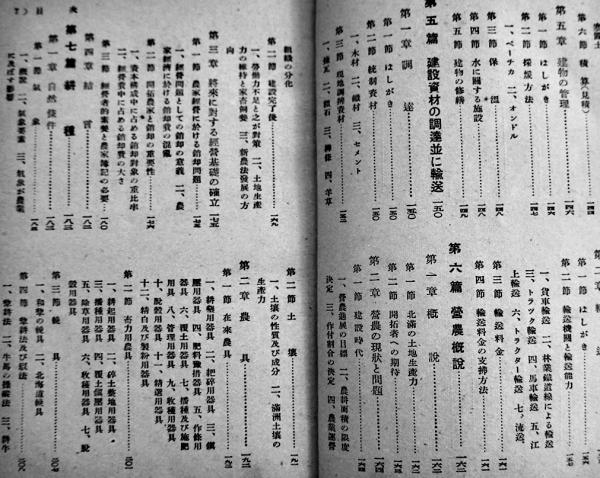 第六節 積算(見積)
第五章 建物の管理
第一節 はしがき
第二節 採煖方法
一、ペーチカ 二、オンドル
第三節 保温
第四節 水に關する施設
第五節 建物の修繕
第五篇 建設資材の調達並に輸送 一五〇
第一章 調達 一五〇
第一節 はしがき 一五〇
第二節 統制資材
一、木材 二、鐵材 三、セメント
第三節 現地調辨資材
第二章 輸送
第一節 はしがき
第二節 輸送機關と輸送能力
一、貨車輸送 二、林業鐵道線による輸送
三、トラック輸送 四、馬車輸送 五、江
上輸送 六、トラクター輸送 七、流送
第三節 輸送料金 一六一
第四節 輸送料金の支拂方法 一六一
第六篇 營農概說
第一章 概說
第一節 北滿の土地生産力
第二節 開拓者への期待
第二章 營農の現狀と問題
第一節 建設時代
一、營農進展の目標 二、農耕面積の限度
決定 三、作付割合の決定 四、農業運營
組織の分化
第二節 建設完了後
一、勞働力不足と之が對策 二、土地生産
力の維持と家畜飼養 三、新農法發展の方
向
第三章 將來に對する經營基礎の確立 一七五
第一節 農家經營に於ける銷却問題 一七五
一、經營問題としての銷却の意義 二、農
家經營に於ける銷却費の混亂
第二節 開拓農家と銷却の重要性
一、資本構成中に占める銷却對象の重比率
二、經營費中に占める銷却費の大さ
第三節 經營者的素養と農家簿記の必要 一八〇
第四章 結言
第七篇 耕種
第一章 自然條件
第一節 氣象
一、概說 二、氣象要素 三、氣象が農業
に及ぼす影響
第二節 土壤 一九一
一、土壤の性質及び成分 二、滿洲土壤の
生産力
第二章 農具 一九二
第一節 在來農具
一、耕墾用器具 二、耙碎用器具 三、鎮
壓用器具 四、肥料撒播器具 五、作條用
器具 六、覆土用器具 七、播種及び施肥
用具 八、管理用器具 九、收穫用器具
十、脫穀用器具 十一、精選用器具
十二、精白及び製粉用器具
第二節 畜力用農具 二〇一
一、耕起用器具 二、碎土整地用器具
三、播種用器具 四、覆土鎮壓用器具
五、除草用器具 六、收穫用器具 七、脫
穀用器具
第三節 輓具 二〇七
一、和犂の輓具 二、北海道輓具
第四節 犂耕法及び馭法 二〇八
一、犂耕法 二、牛馬の操縱法 三、耕牛
目次